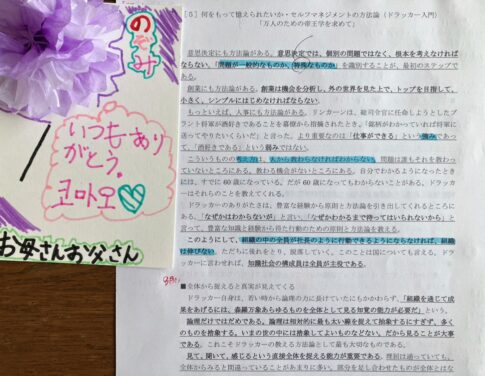 のぞみ
いつもあり
がとう。
코마오
お母さんお父さん
[5] 何をもって憶えられたいか・セルフマネジメントの方法論（ドラッカー入門）
「万人のための帝王学を求めて」
意思決定にも方法論がある。意思決定では、個別の問題ではなく、根本を考えなければ
ならない。「問題が一般的なものか、特殊なものか」を識別することが、最初のステップで
ある。
創業にも方法論がある。創業は機会を分析し、外の世界を見た上で、トップを目指して、
小さく、シンプルにはじめなければならない。
もっといえば、人事にも方法論がある。リンカーンは、総司令官に任命しようとしたグ
ラント将軍が酒好きであることを幕僚から指摘されたとき、「銘柄がわかっていれば将軍に
送ってやりたいくらいだ」と言った。より重要なのは「仕事ができる」という強みであっ
て、「酒好きである」という弱みではない。
こういうものの考え方は、人から教わらなければわからない。問題は誰もそれを教わっ
ていないところにある。教わる機会がないところにある。自分でわかるようになったとき
には、すでに60歳になっている。だが60歳になってもわからないことがある。ドラッカ
ーはそれらのことを教えてくれる。
ドラッカーのありがたさは、豊富な経験から原則と方法論を引き出してくれるところに
ある。「なぜかはわからないが」と言い、「なぜかわかるまで待ってはいられないから」と言
って、豊富な知識と経験から得た行動のための原則と方法論を教える。
このようにして、組織の中の全員が社長のように行動できるようにならなければ、組織
は伸びない。ただちに後れをとり、脱落していく。このことは国についても言える。ドラ
ッカーに言わせれば、知識社会の構成員は全員が主役である。
■全体から捉えると真実が見えてくる
ドラッカー自身は、若い時から論理の力に長けていたにもかかわらず、「組織を通じて成
果をあげるには、森羅万象あらゆるものを全体として見る知覚の能力が必要だ」という。
論理だけではだめである。論理は相対的に最も太い線を捉えて抽象するにすぎず、多く
のものを捨象する。いまの世の中には捨象してよいものなどない。だから見ることが大事
である。これこそドラッカーの教える方法論として最も大切なものである。
見て、聞いて、感じるという直接全体を捉える能力が重要である。理屈は通っていても、
全体からみると間違っていることがあまりに多い。部分を足し合わせたものが全体とはな